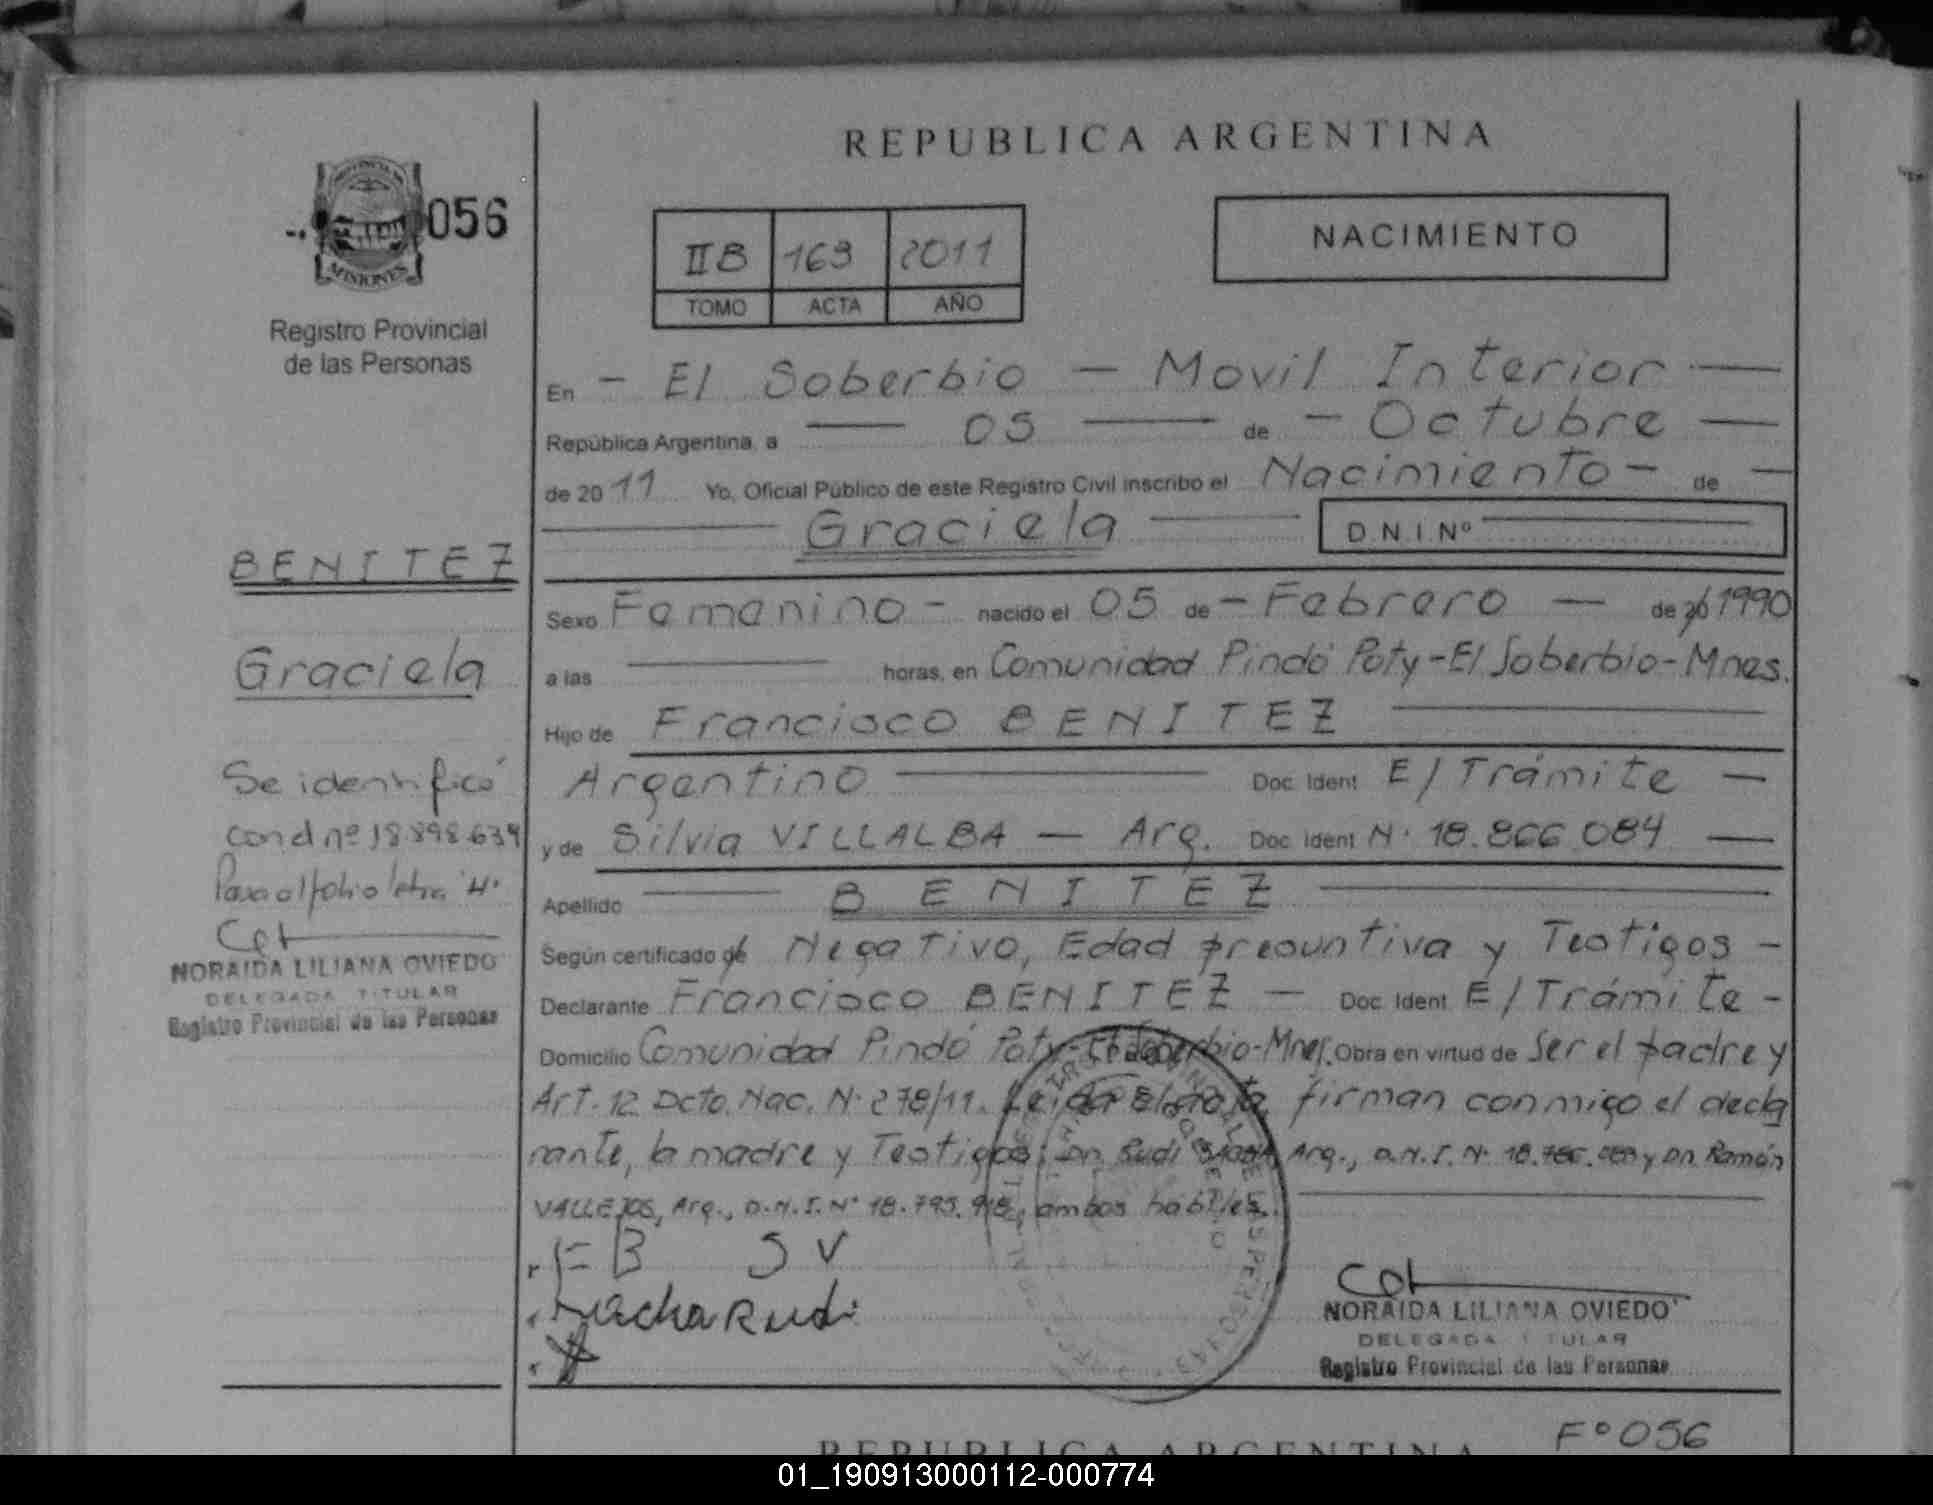 REPUBLICA ARGENTINA
056
MISIONES
Registro Provincial
de las Personas
IIB 169 2011
TOMO ACTA AÑO
NACIMIENTO
En - El Soberbio - Movil Interior -
República Argentina, a - 05 - de - Octubre -
de 20 11 Yo, Oficial Público de este Registro Civil inscribo el Nacimiento - de -
- Graciela - D.N.I.Nº -
BENITEZ
Graciela
Se identificó
con d nº 18.898.634
Pasa al folio letra "H"
NORAIDA LILIANA OVIEDO
DELEGADA TITULAR
Registro Provincial de las Personas
Sexo Femenino - nacido el 05 de - Febrero - de 20 1990
a las - horas, en Comunidad Pindó Poty - El Soberbio - Mnes.
Hijo de Francisco BENITEZ -
Argentino - Doc. Ident. E/Trámite -
y de Silvia VILLALBA - Arg. Doc. Ident. N. 18.866.084 -
Apellido - BENITEZ -
Según certificado de Negativo, Edad presuntiva y Testigos -
Declarante Francisco BENITEZ - Doc. Ident. E/Trámite -
Domicilio Comunidad Pindó Poty - El Soberbio - Mnes. Obra en virtud de Ser el padre y
Art. 12 Dcto. Nac. N. 278/11. Leída el acta firman conmigo el decla
rante, la madre y Testigos: Dn Rudi Arg., D.N.I. N. y Dn. Ramón
VALLEJOS, Arg., D.N.I. Nº 18.795.918, ambos hábiles.
FB SV
Rudi
NORAIDA LILIANA OVIEDO
DELEGADA TITULAR
Registro Provincial de las Personas
Fº 056
REPUBLICA ARGENTINA
01_190913000112-000774